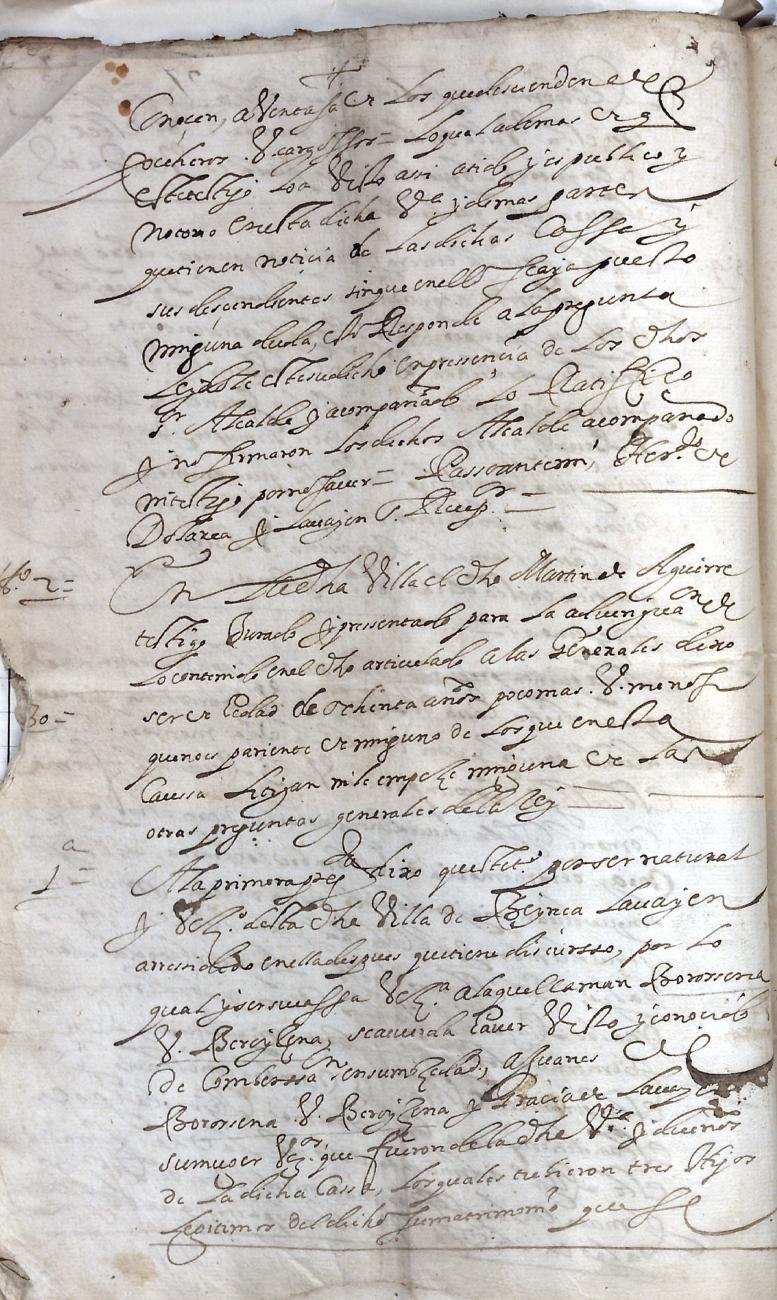 Conocen, a Ventaja de Los que descienden de
Cocheros. V. cargossos = Lo qual ademas de q
este testigo Loa Visto assi a sido y es publico y
notorio en esta dicha Va. y demas partes
que tienen noticia de Las dichas Cassas y
sus descendientes sin que en ello se aya puesto
ninguna duda, esto Responde a la pregunta
Leydole este su dicho en pressencia de Los dhos
Sr. Alcalde y acompañado Lo Ratiffico
y no firmaron Los dichos Alcalde acompañado
ni testigo por no saver = Passo ante mi, de
Lavayen
to. 2 =
En La dha Villa el dho Martin de Aguirre
testigo Jurado y pressentado para La adveriguaon. de
Lo contenido en el dho articulado a las Generales dixo
80 =
ser de Hedad de ochenta años poco mas. V. menos
que no es pariente de ninguno de Los que en esta
Caussa Litigan ni le empeze ninguna de Las
otras preguntas generales de la Ley
1a =
A la primera pregta dixo que este to. por ser natural
y Vezo. de sta dha Villa de Lavayen
a ressidido en ella despues que tiene discursso, por Lo
qual y ser su cassa Veza. a la que llaman Bororena
V. se acuerda haver Visto y conocido
de Comberssaon en su mozedad, a Juanes de
Bororena. V. y Gracia de Lavayen
su muger Vezos. que fueron de la dha Va. y dueños
de La dicha Cassa, Los quales tubieron tres Hijos
Legitimos del dicho su matrimonio que se